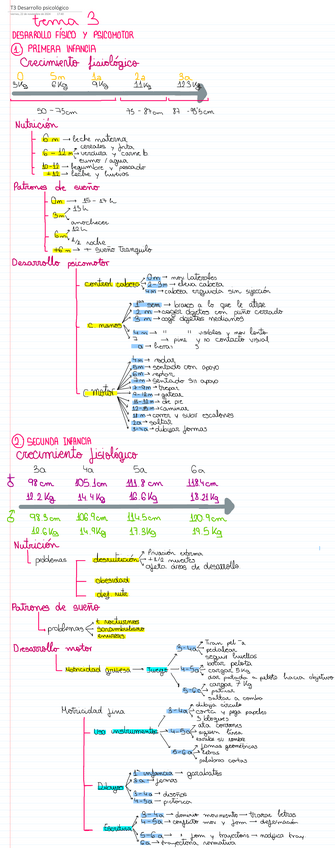 T3 Desarrollo psicológico
tema 3
DESARROLLO FÍSICO Y PSICOMOTOR
1 PRIMERA INFANCIA
Crecimiento fisiológico
0 5m 1a 2a 3a
3Kg 6Kg 9Kg 11Kg 12'3Kg
50 - 75cm 75 - 87cm 87 -
Nutrición
6 m → leche materna
cereales y fruta
6 - 12 m → verdura y carne b
zumo / agua
10-12 → legumbre y pescado
+12 → leche y huevos
Patrones de sueño
0m → 15 - 17 h
3m
13 h
anochecer
6m
12 h
1/2 noche
+6m → + sueño tranquilo
Desarrollo psicomotor
control cabeza
0m → mov laterales
2-3m → eleva cabeza
4m → cabeza erguida sin sujeción
C manos
1ª sem → brazos a lo que le atrae
2 m → coger objetos con puño cerrado
3 m → coge objetos medianos
4 m → " " visibles y mov lento
7 → pinza y no contacto visual
C motor
4m → rodar
5m → sentado con apoyo
6m → reptar
7m → sentado sin apoyo
trepar
gatear
de pie
caminar
18 m → correr y subir escalones
2a → saltar
3-4a → dibujar formas
2 SEGUNDA INFANCIA
Crecimiento fisiológico
3a 4a 5a 6a
98 cm 105.1 cm 111.8 cm 118.4 cm
12.2 Kg 14.4 Kg 16.6 Kg 18.21 Kg
98.3 cm 106.9 cm 114.5 cm 120.9 cm
12.6 Kg 14.9 Kg 17.3 Kg 19.5 Kg
Nutrición
problemas
desnutrición
Privación extrema
+1/2 muertes
afecta áreas de desarrollo
obesidad
def nutr
Patrones de sueño
problemas
t nocturnos
sonambulismo
enuresis
Desarrollo motor
Motricidad gruesa → Juego
3-4a
pedalear
seguir huellas
4-5a
botar pelota
cargar 5 Kg
dar patada a pelota hacia objetivo
5-6a
cargar 7 Kg
patinar
saltar a comba
Motricidad fina
Uso instrumentos
3-4a
dibuja círculo
corta y pega papeles
3 bloques
4-5a
ata cordones
siguen línea
escribe su nombre
5-6a
formas geométricas
letras
palabras cortas
Dibujos
1ª infancia → garabatos
3a → formas
3-4a → diseños
4-5a → pictórica
Escritura
3-4a → dominio movimiento → trazar letras
4-5a → conflicto mov y form → deformación
5-6a → + form y trayectoria → modifica tray
6a → trayectoria normativa